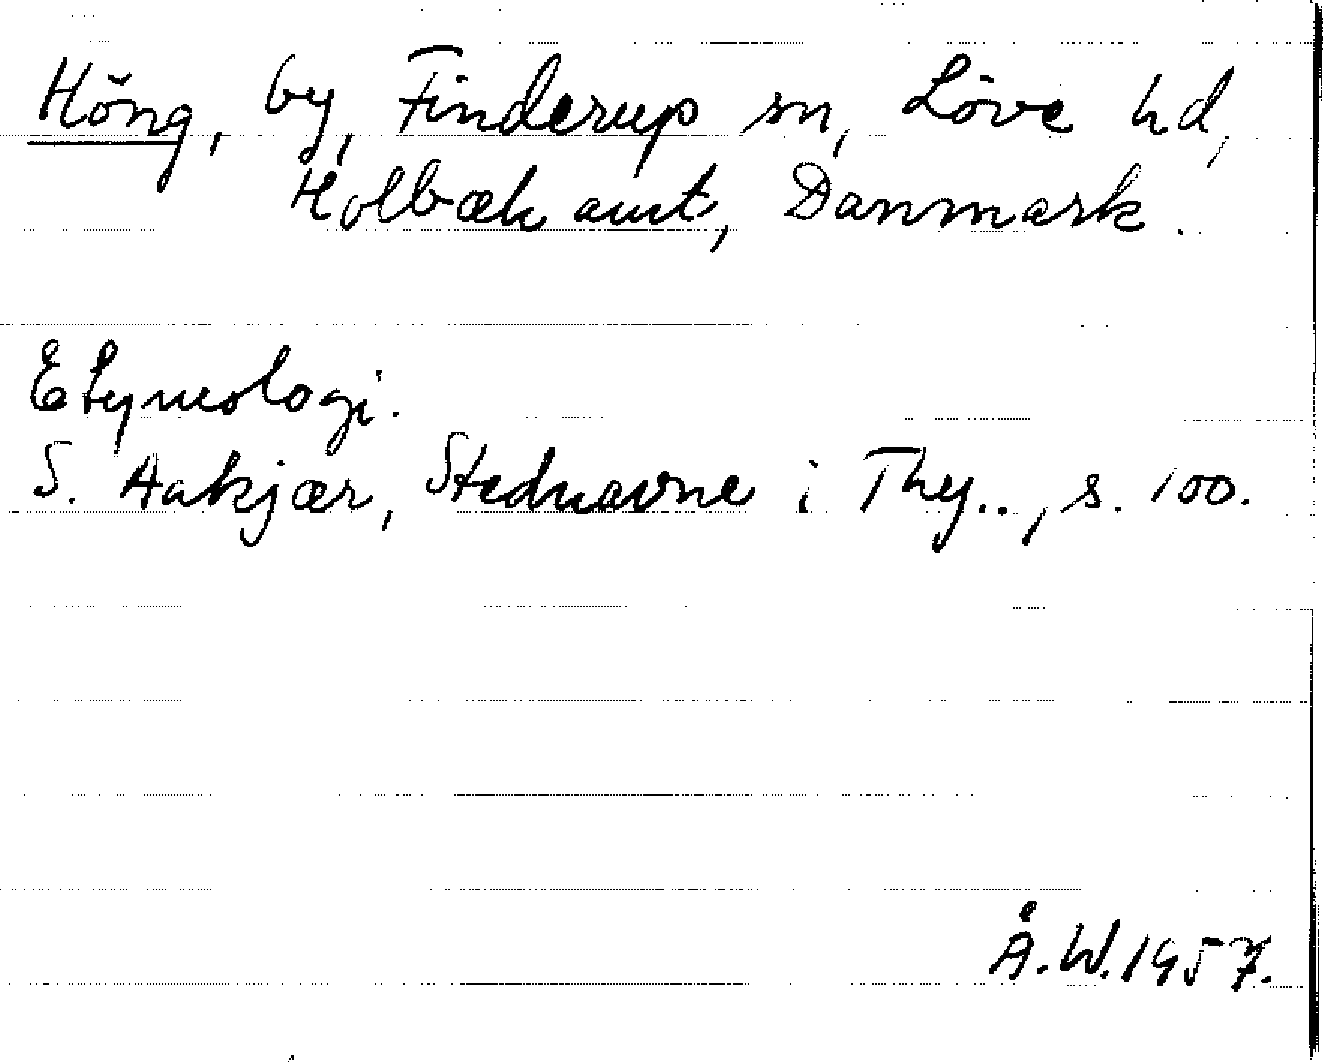 Höng, by, Finderup sn, Löve hd,
Holbæk amt, Danmark.
Etymologi.
S. Aakjær, Stednavne i Thy.., s. 100.
Å.W.1957.